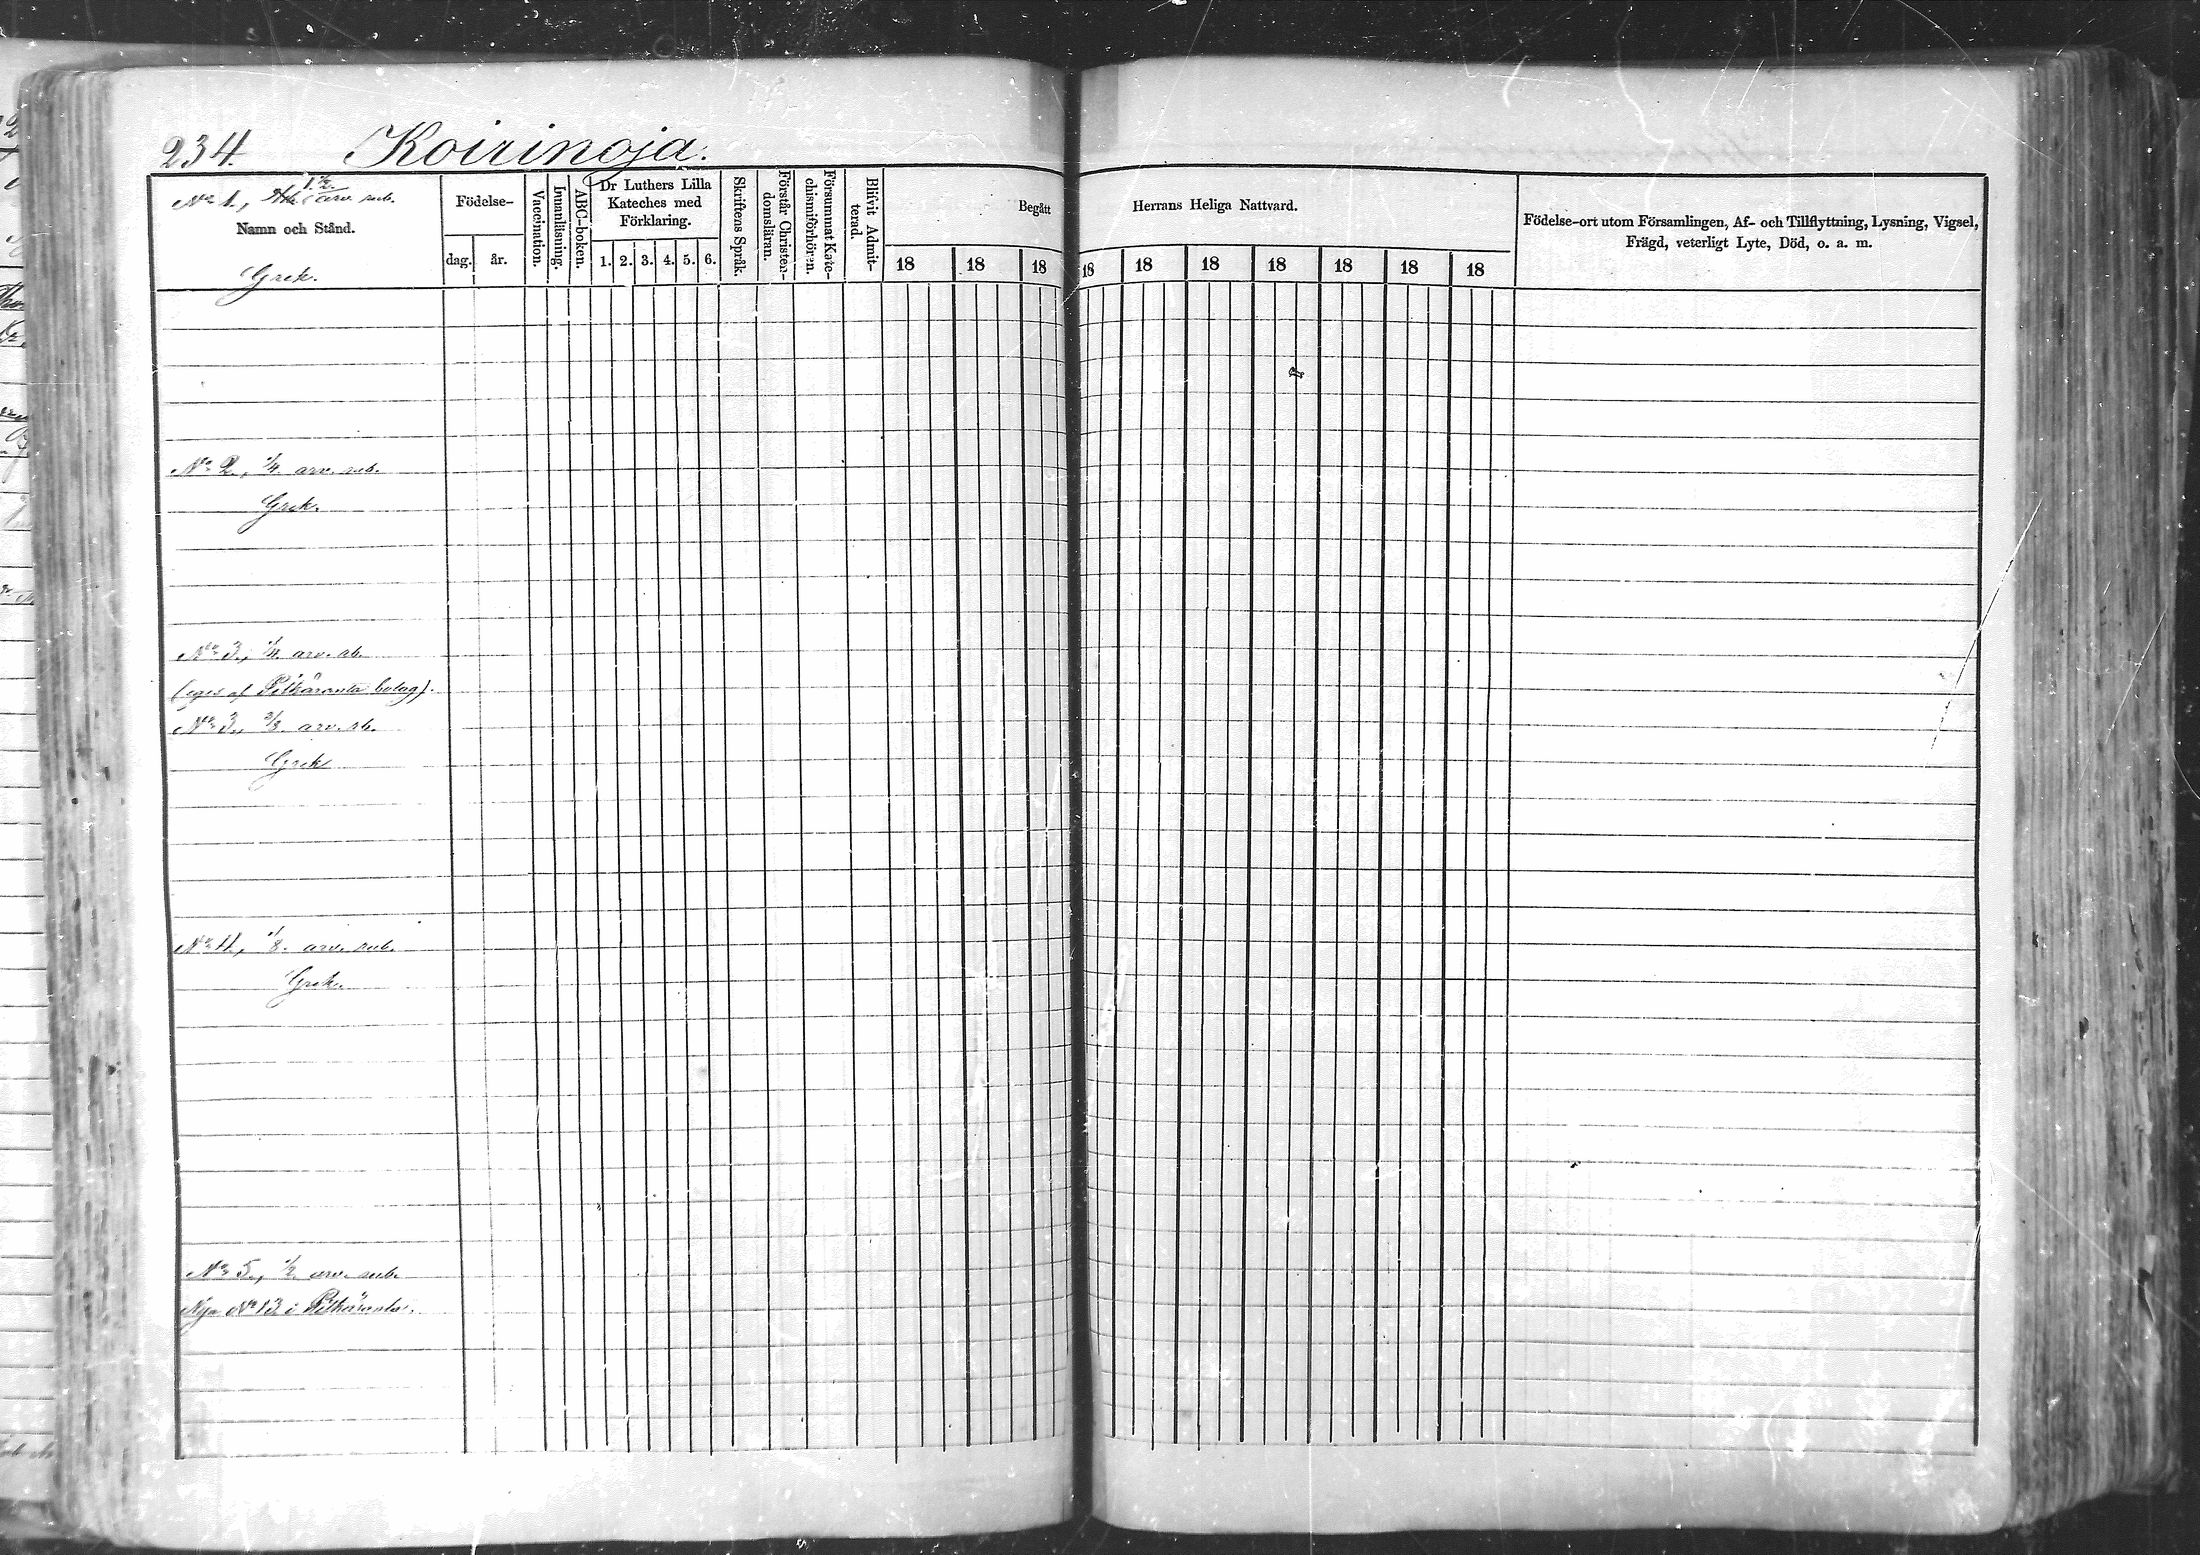 234. Koirinoja.
No 1, 1 1/2 arv. rub.
Namn och Stånd.
Grek.
Födelse-
dag. år.
Vaccination.
Innanläsning.
ABC-boken.
Dr Luthers Lilla
Kateches med
Förklaring.
1. 2. 3. 4. 5. 6.
Skriftens Språk.
Förstår Christen-
domsläran.
Försummat Kate-
chismiförhören.
Blifvit Admit-
terad.
Begått Herrans Heliga Nattvard.
18 18 18 18 18 18 18 18 18 18
Födelse-ort utom Församlingen, Af- och Tillflyttning, Lysning, Vigsel,
Frägd, veterligt Lyte, Död, o. a. m.
No 2, 1/4 arv. rub.
Grek.
No 3, 1/4 arv. rb.
(eges af Pitkäranta bolag).
No 3, 3/8 arv. rb.
Grek.
No 4, 1/8 arv. rub.
Grek.
No 5, 1/2 arv. rub.
Nya No 13 i Pitkäranta.